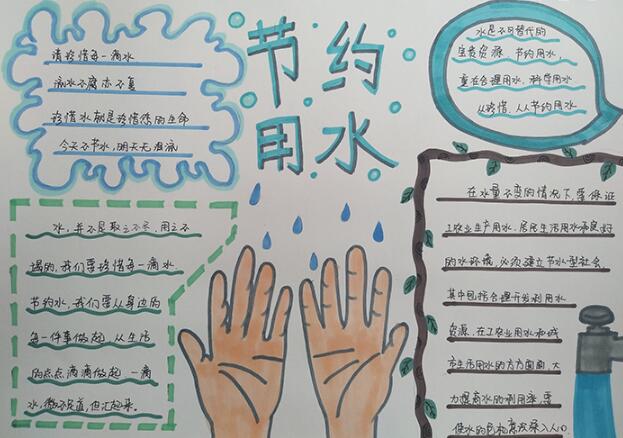 节约
用水
请珍惜每一滴水
流水不腐亦不复
珍惜水就是珍惜您的生命
今天不节水,明天无泪流
水是不可替代的
宝贵资源,节约用水,
重在合理用水,科学用水
从珍惜,人人节约用水
水,并不是取之不尽,用之不
竭的,我们要珍惜每一滴水
节约水,我们要从身边的
每一件事做起,从生活
的点点滴滴做起,一滴
水,微不足道,但汇起来。
在水量不变的情况下,要保证
工农业生产用水、居民生活用水和良好
的水环境,必须建立节水型社会
其中包括合理开发利用水
资源,在工农业用水和城
市生活用水的方方面面,大
力提高水的利用率,要
使水的危机意识深入人心